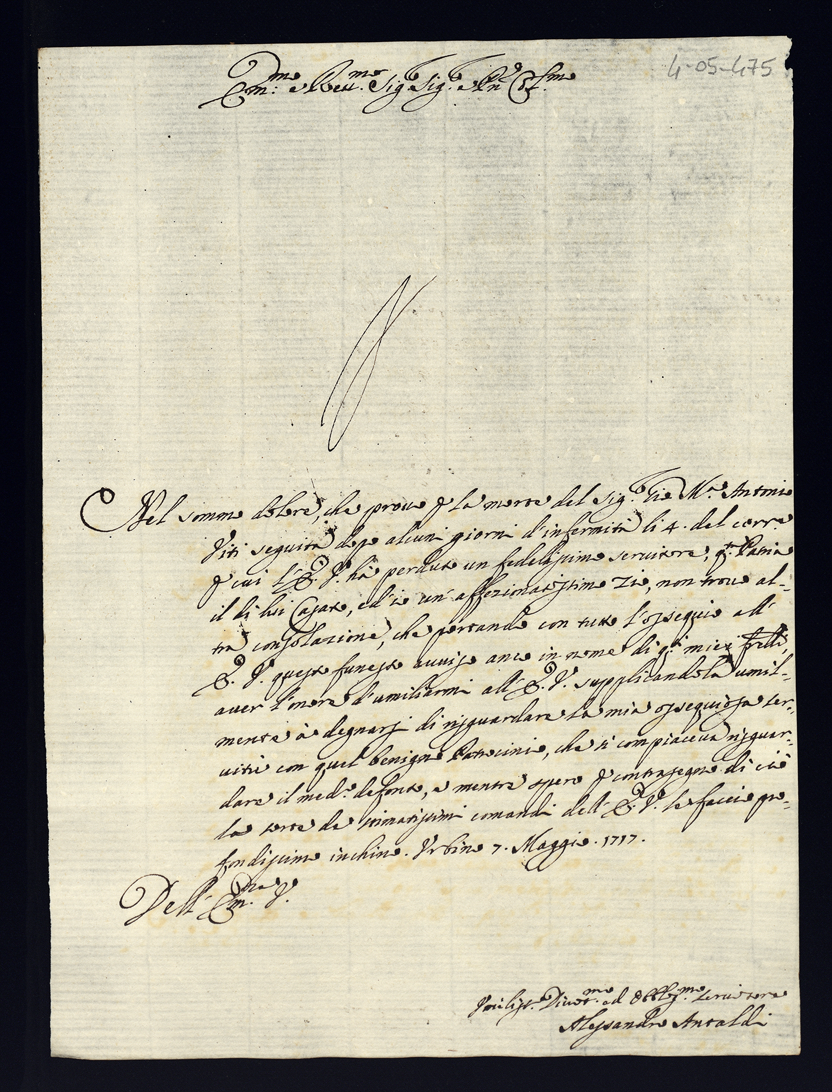 4-05-475
Em:mo e Rev:mo Sig.re Sig.re e Pn̄e Col.mo
Nel sommo dolore, che provo p la morte del Sig.re Zio M.c Antonio
Viti seguita dopo alcuni giorni d'infermità li 4. del corr.e
p cui l'E. V. hà perduto un fedelissimo servitore, q.ta Patria
il di lui Casato, ed io un' affezionatissimo Zio, non trovo al-
tra consolazione, che portando con tutto l'ossequio all'
E. V. questo funesto avviso anco in nome di q.ti miei fratelli,
aver l'onore d'umiliarmi all'E. V. supplicandola umil-
mente à degnarsi di risguardare la mia ossequiosa ser-
vitù con quel benigno Patrocinio, che si compiaceva risguar-
dare il med.o defonto, e mentre spero p contrasegno di ciò
la sorte de stimatissimi comandi dell'E. V. le faccio pro-
fondissimo inchino. Urbino 7. Maggio. 1717.
Dell'Em.za V.
Umiliss.o Divot.mo ed Obblig.mo servitore
Alessandro Antaldi